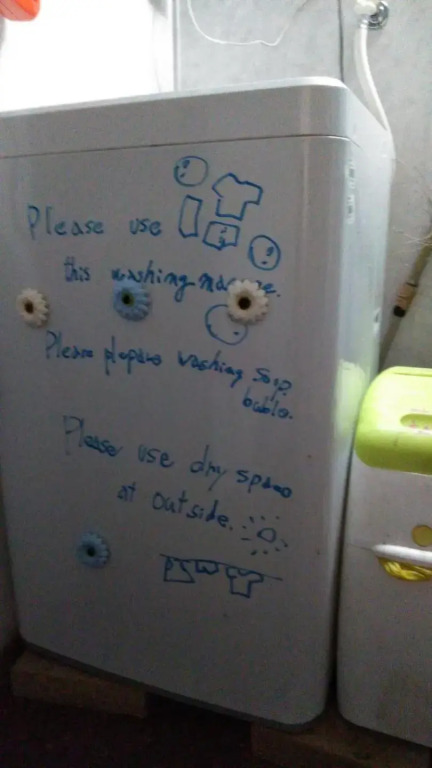 Please use
this washing machine.
Please prepare washing soap
buble.
Please use dry space
at outside.